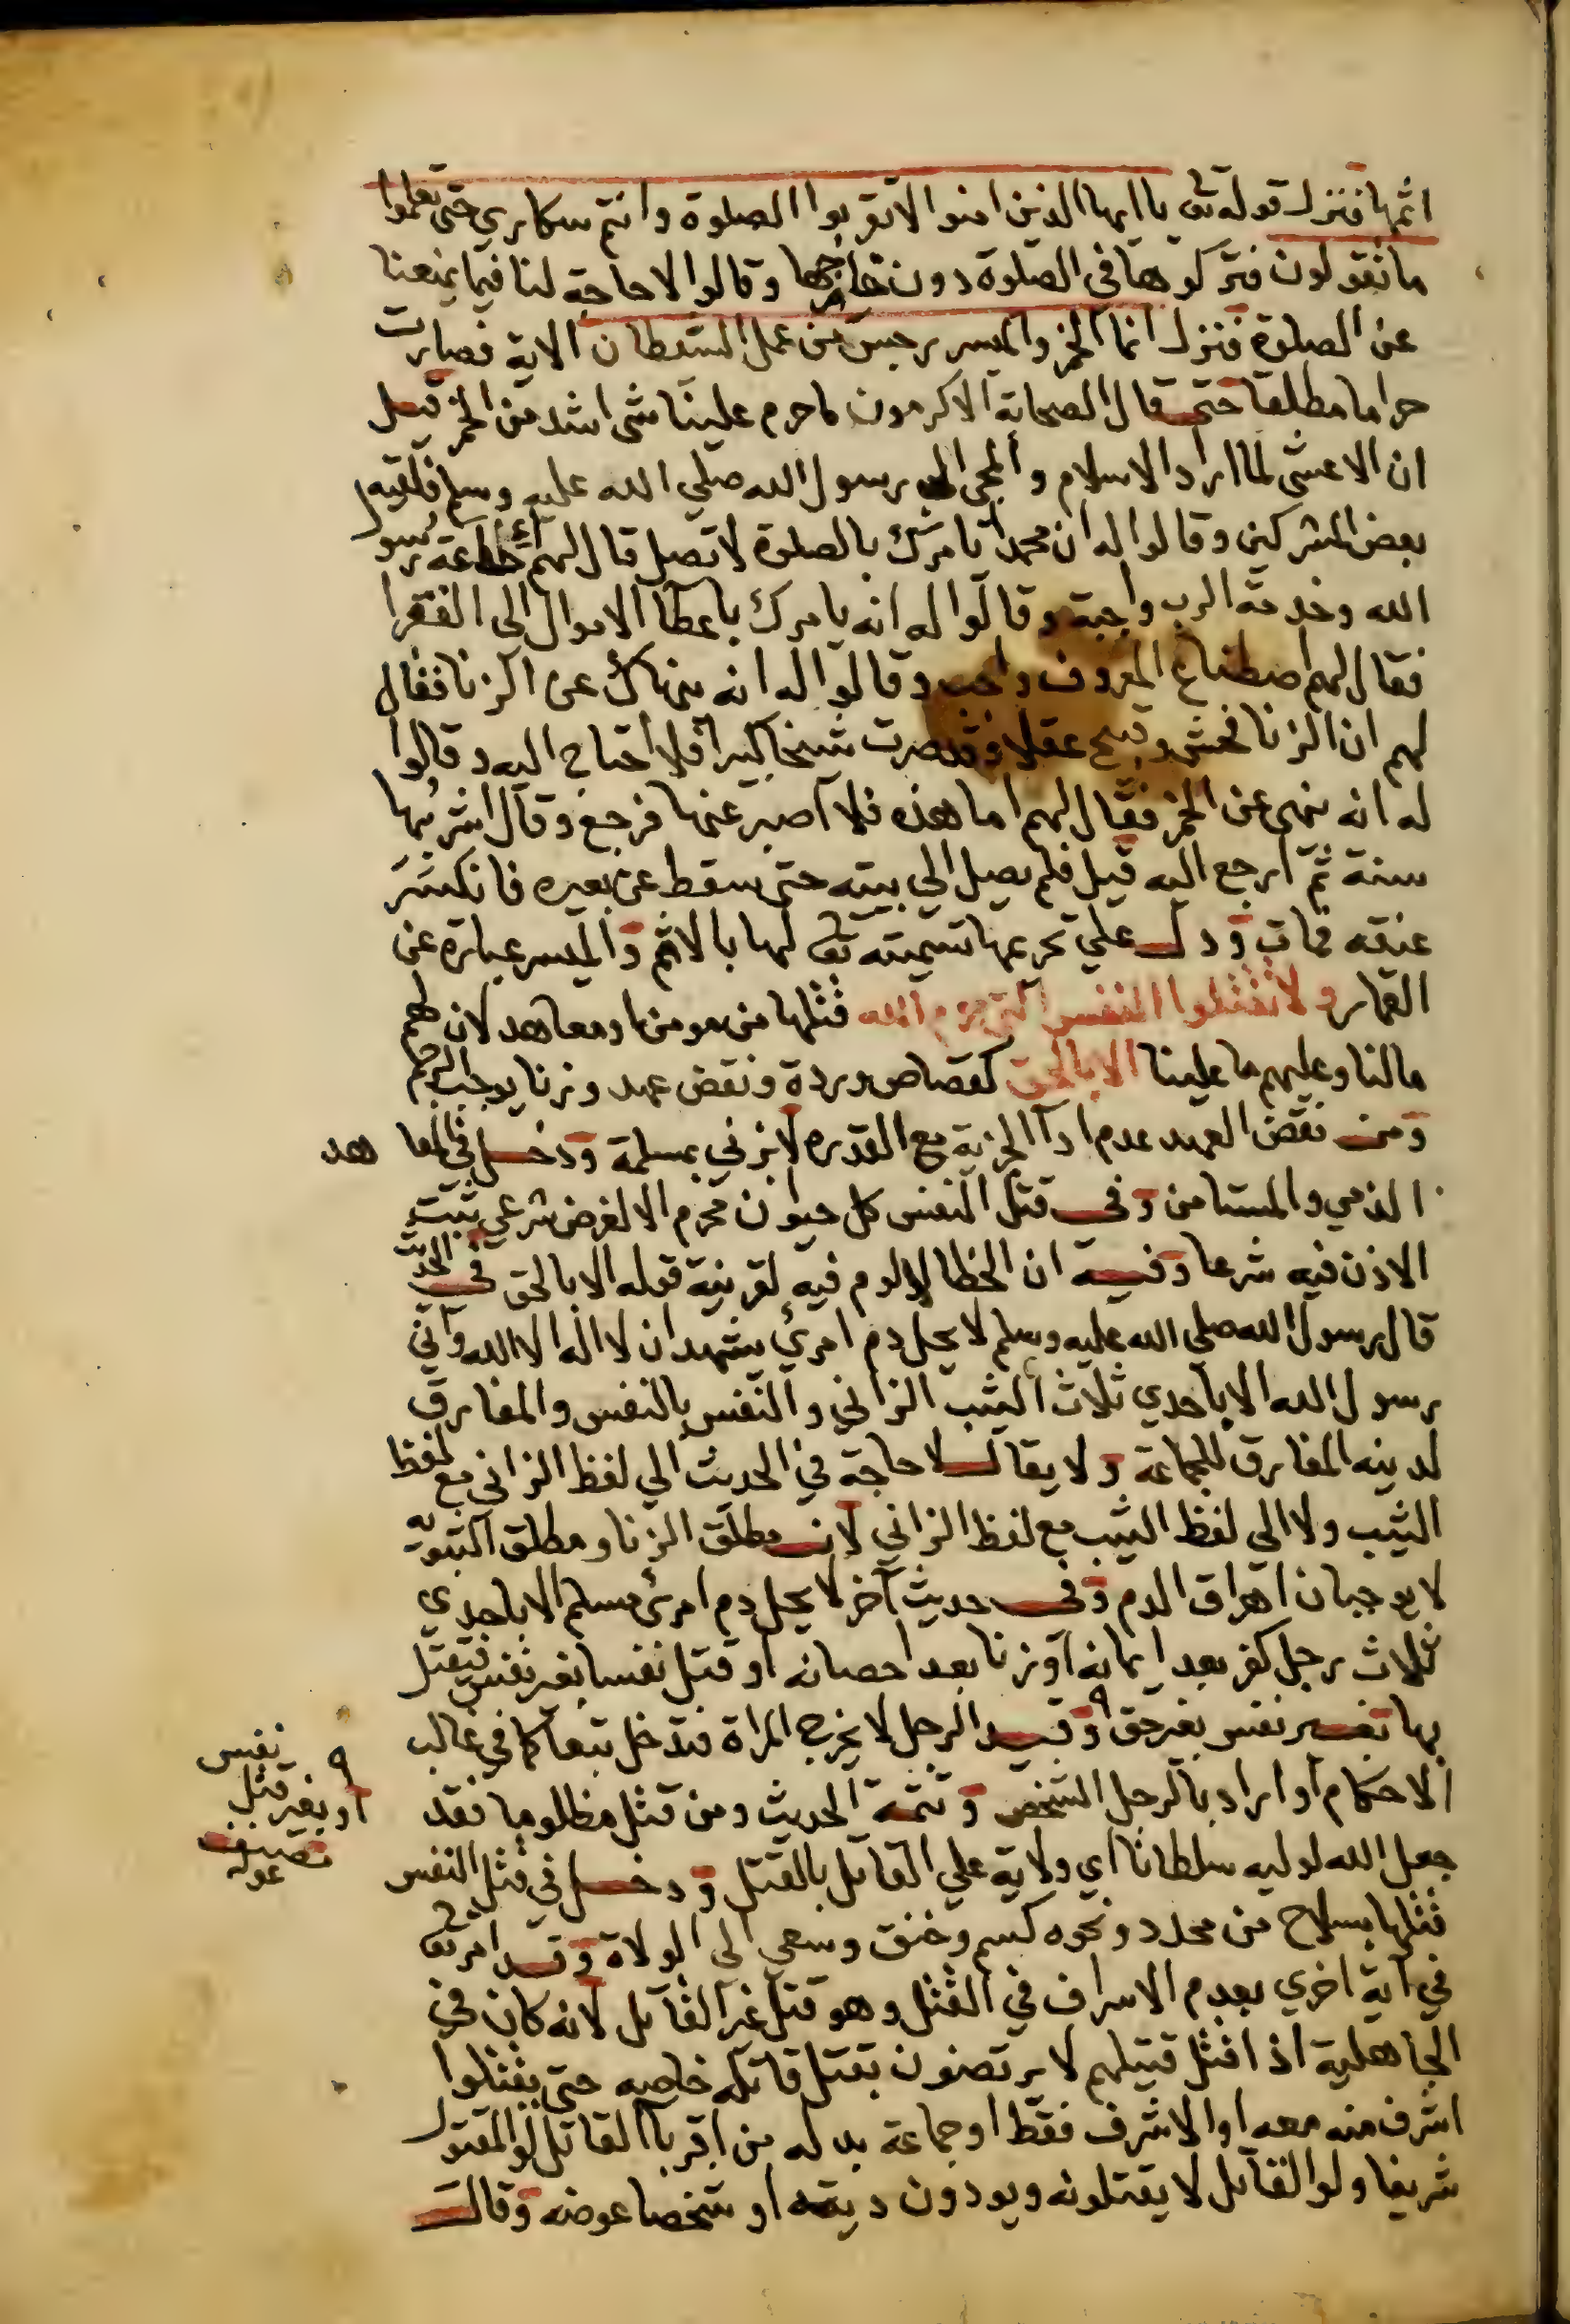 اثمها فنزل قوله تعا يا ايها الذين امنوا لاتقربوا الصلوة وانتم سكاري حتي تعلموا
ما تقولون فتركوها في الصلوة دون خارجها وقالوا لا حاجة لنا فيما يمنعنا
عن الصلوة فنزل انما الخمر والميسر رجس من عمل الشيطان الاية فصارت
حراما مطلقا حتي قال الصحابة الاكرمون ما حرم علينا شي اشد من الخمر قيل
ان الاعشي لما اراد الاسلام والمجي الي رسول الله صلي الله عليه وسلم فلقيه
بعض المشركين وقالوا له ان محمدا يامرك بالصلوة لا تصل قال لهم اطاعة رسول
الله وخدمة الرب واجبة وقالوا له انه يامرك باعطآ الاموال الي الفقرا
فقال لهم اصطناع المعروف واجب وقالوا له انه ينهاك عن الزنا فقال
لهم ان الزنا فحش وقبيح عقلا وقد صرت شيخا كبيرا فلا احتاج اليه وقالوا
له انه ينهي عن الخمر فقال لهم اما هذه فلا اصبر عنها فرجع وقال اشربها
سنة ثم ارجع اليه قيل فلم يصل الي بيته حتي سقط عن بعيره فانكسر
عنقه فمات ودل علي تحريمها تسميته تعا لها بالاثم والميسر عبارة عن
القمار ولا تقتلوا النفس التي حرم الله قتلها من مومن او معاهد لان لهم
مالنا وعليهم ما علينا الا بالحق كقصاص وردة ونقض عهد وزنا يوجب الرجم
ومن نقض العهد عدم ادآ الجزية مع القدره لا بزني بمسلمة ودخل في المعاهد
الذمي والمستامن وفي قتل النفس كل حيوان محرم الا لغرض شرعي ثبت
الاذن فيه شرعا وفيه ان الخطا لا لوم فيه لقرينة قوله الا بالحق في الحديث
قال رسول الله صلي الله عليه وسلم لا يحل دم امرئ يشهد ان لا اله الا الله واني
رسول الله الا باحدي ثلاث الثيب الزاني والنفس بالنفس والمفارق
لدينه المفارق للجماعة ولا يقال لا حاجة في الحديث الي لفظ الزاني مع لفظ
الثيب ولا الي لفظ الثيب مع لفظ الزاني لان مطلق الزنا ومطلق الثيوبة
لا يوجبان اهراق الدم وفي حديث آخر لا يحل دم امرئ مسلم الا باحدي
ثلاث رجل كفر بعد ايمانه او زنا بعد احصانه او قتل نفسا بغير نفس فيقتل
بها تفسير نفس بغير حق وقيد الرجل لا يخرج المراة فتدخل تبعا كما في غالب
الاحكام او اراد بالرجل الشخص وتتمة الحديث ومن قتل مظلوما فقد
جعل الله لوليه سلطانا اي ولاية علي القاتل بالقتل ودخل في قتل النفس
قتلها بسلاح من محدد ونحوه كسم وخنق وسعي الي الولاة وقد امر تعا
في آية اخري بعدم الاسراف في القتل وهو قتل غير القاتل لانه كان في
الجاهلية اذا قتل قتيلهم لا يرتضون بقتل قاتله خاصه حتي يقتلوا
اشرف منه معه او الاشرف فقط او جماعة بدله من اقربا القاتل لو المقتول
شريفا ولو القاتل لا يقتلونه ويودون ديته او شخصا عوضه وقال
نفس
او بغير قتل